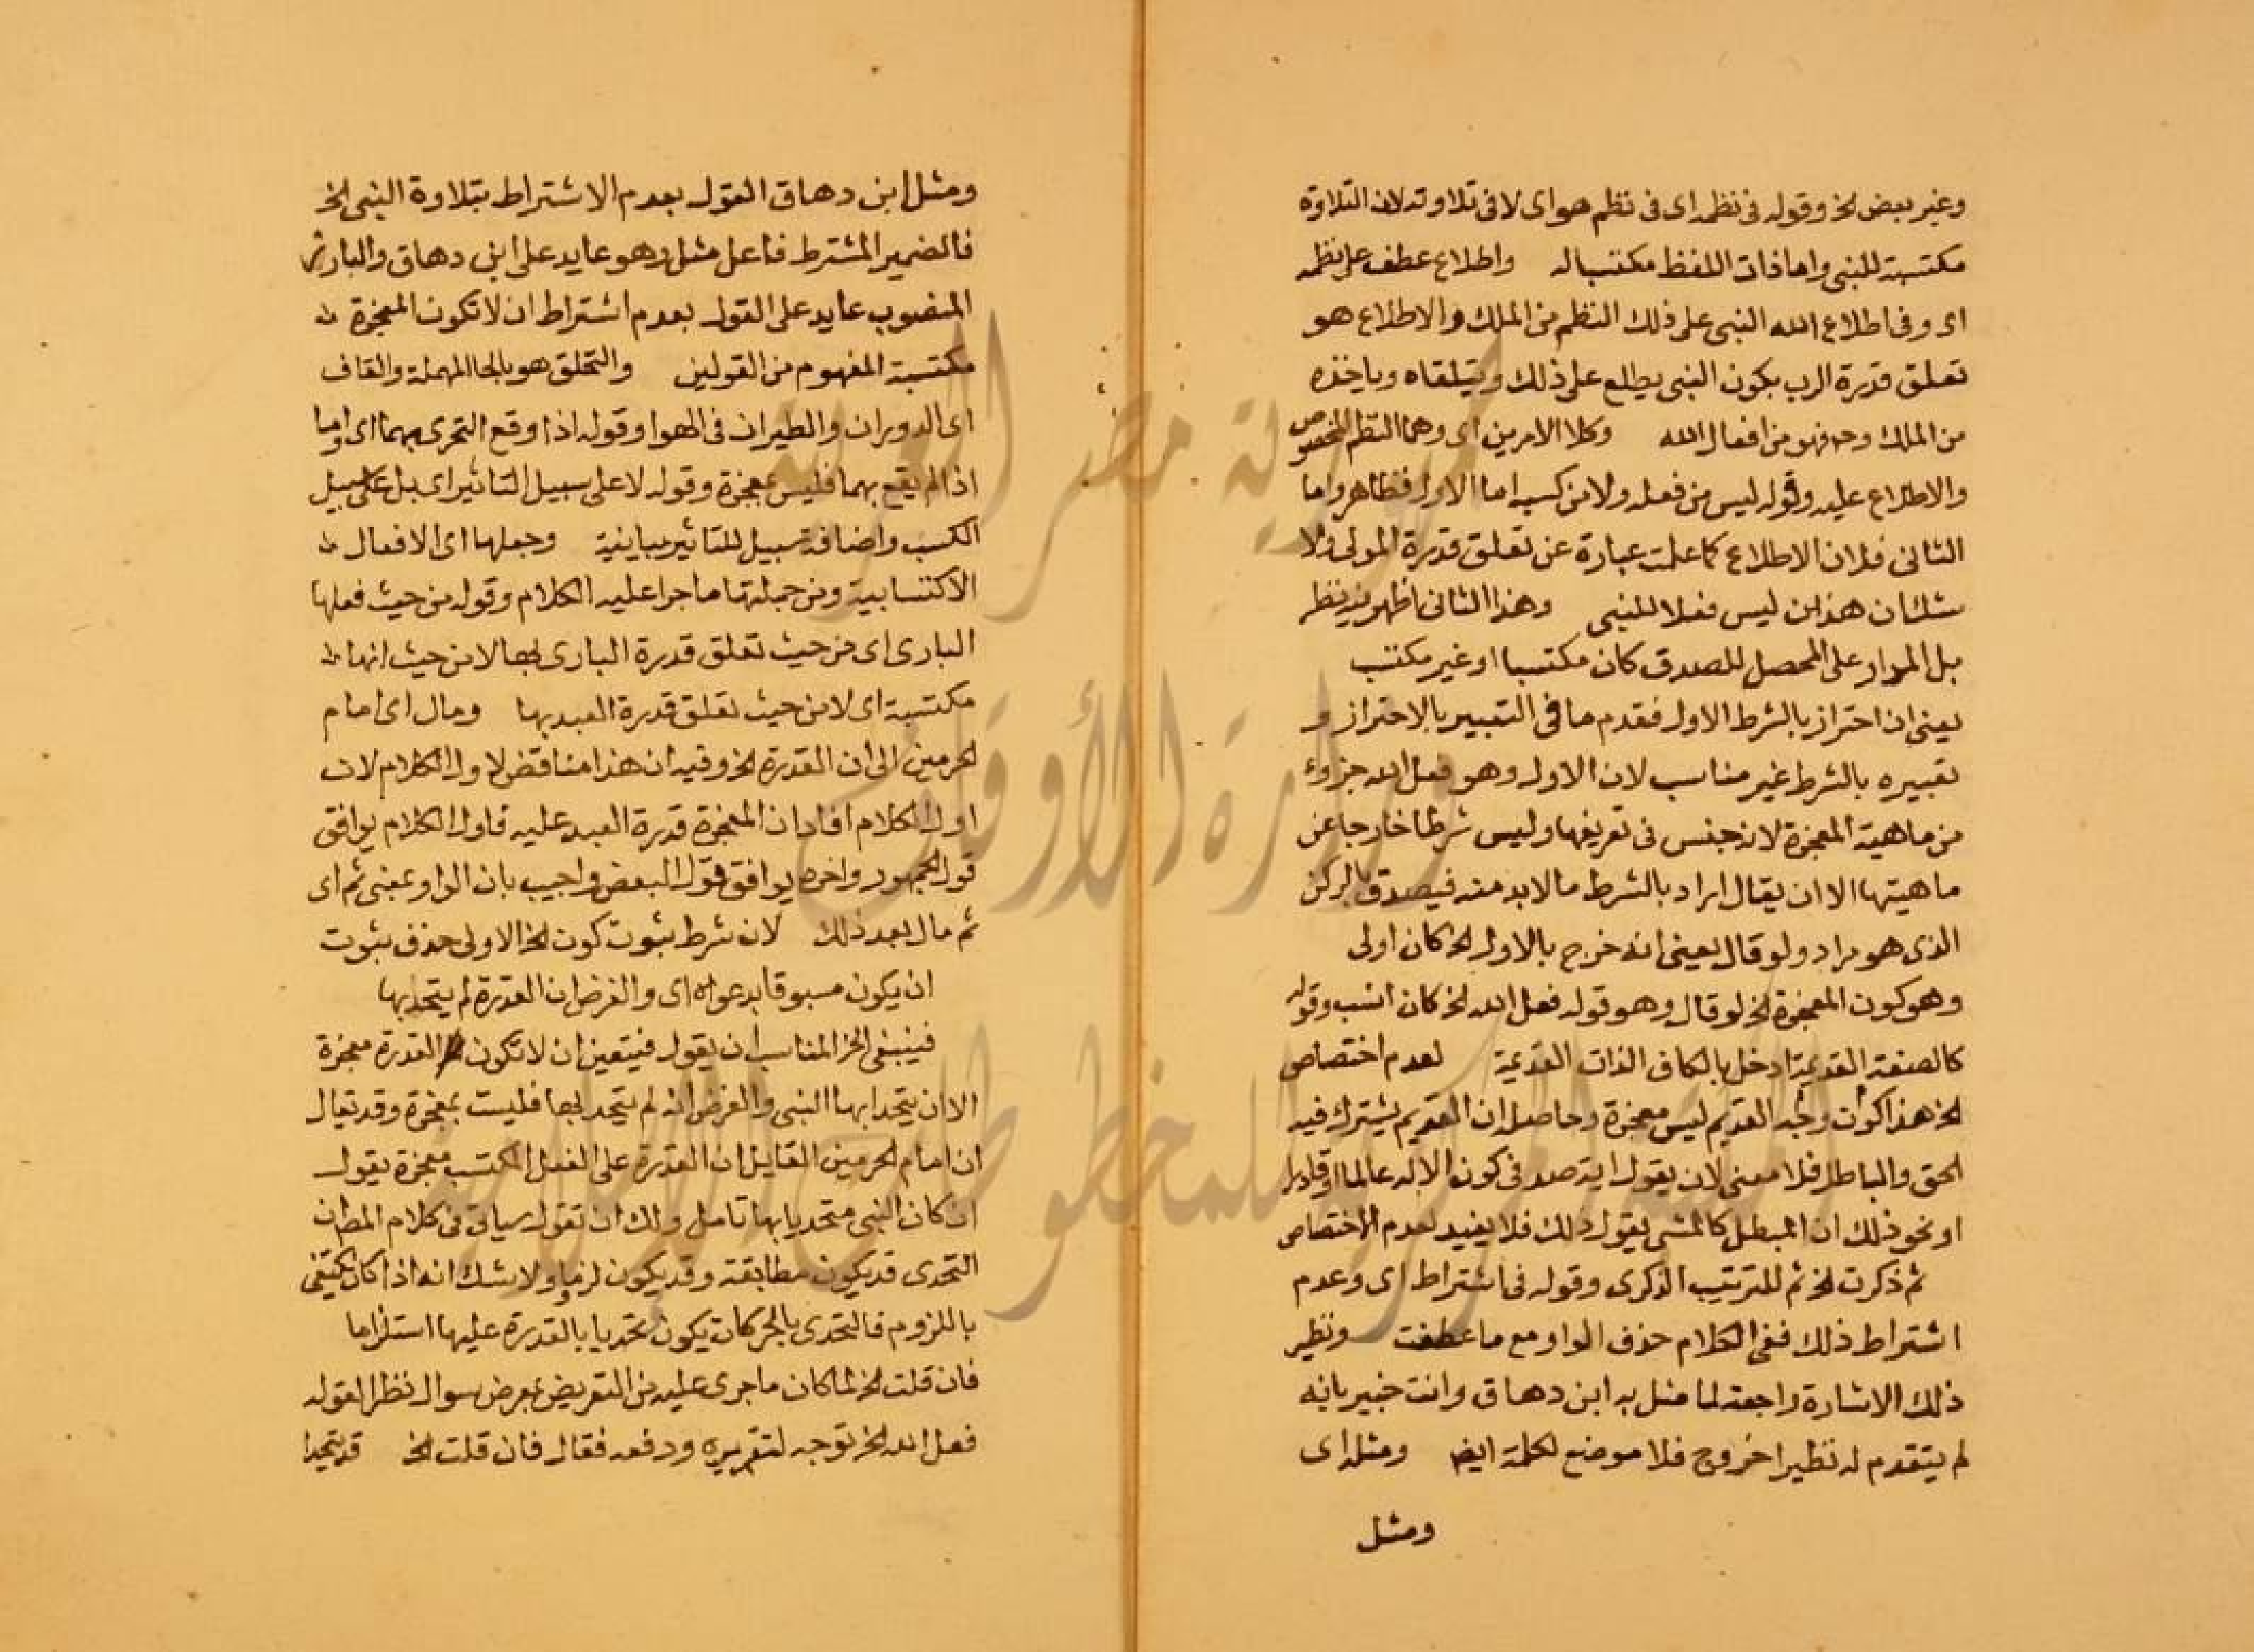 وغير بيض لخ وقوله في نظمه اى في نظم هو اى لا في تلاوته لان التلاوة
مكتسبة للنبي واما ذات اللفظ مكتسبا له واطلاع عطف على نظمه
اى وفى اطلاع الله النبي على ذلك النظم من الملك والاطلاع هو
تعلق قدرة الرب بكون النبي يطلع على ذلك ويتلقاه وياخذه
من الملك وحـ فهو من افعال الله وكلا الامرين اى وهما النظم المخصوص
والاطلاع عليه وقوله ليس من فعله ولا من كسبه اما الاول فظاهر واما
الثانى فلان الاطلاع كما علمت عبارة عن تعلق قدرة المولى ولا
شك ان هذين ليس فعلا للنبي وهذا الثانى اظهر فيه نظر
بل المدار على المحصل للصدق كان مكتسبا او غير مكتسب
يعنى ان احتراز بالشرط الاول فقدم ما فى التعبير بالاحتراز و
تعبيره بالشرط غير مناسب لان الاول وهو فعل الله جزؤ
من ماهية المعجزة لانه جنس فى تعريفها وليس شرطا خارجا عن
ماهيتها الا ان يقال اراد بالشرط ما لابد منه فيصدق بالركن
الذى هو مراد ولو قال يعنى انه خرج بالاول لخ كان اولى
وهو كون المعجزة لخ لو قال وهو قوله فعل الله لخ كان انسب وقوله
كالصفة القديمة ادخل بالكاف الذات القديمة لعدم اختصاص
لخ هذا كون وجه القديم ليس معجزة وحاصله ان القديم يشترك فيه
الحق والباطل فلا معنى لان يقول اية صدقى كون الاله عالما او قادرا
او نحو ذلك ان المبطل كالمتنبى يقول ذلك فلا يفيد لعدم الاختصاص
ثم ذكرت لخ ثم للترتيب الذكرى وقوله فى اشتراط اى وعدم
اشتراط ذلك ففى الكلام حذف الواو مع ما عطفت ونظير
ذلك الاشارة راجعة لما مثل به ابن دهاق وانت خبير بانه
لم يتقدم له نظير اخر وح فلا موضع لكلمة ايض ومثله اى
ومثل
ومثل ابن دهاق القول بعدم الاشتراط بتلاوة النبي لخ
فالضمير المشترط فاعل مثل وهو عايد على ابن دهاق والبارز
المنصوب عايد على القول بعدم اشتراط ان لا تكون المعجزة
مكتسبة المفهوم من القولين والتحلق هو بالحا المهملة والقاف
اى الدوران والطيران فى الهوا وقوله اذا وقع التحدى بهما اى واما
اذا لم يقع بهما فليس معجزة وقوله لا على سبيل التاثير اى بل على سبيل
الكسب واضافة سبيل للتاثير بيانية وجعلها اى الافعال
الاكتسابية ومن جملتها ما جرا عليه الكلام وقوله من حيث فعلها
البارى اى من حيث تعلق قدرة البارى بها لا من حيث انها
مكتسبة اى لا من حيث تعلق قدرة العبد بها ومال اى امام
الحرمين الى ان القدرة لخ وفيه ان هذا مناقض لاول الكلام لان
اول الكلام افاد ان المعجزة قدرة العبد عليه فاول الكلام يوافق
قول الجمهور واخره يوافق قول البعض واجيب بان الواو بمعنى ثم اى
ثم مال بعد ذلك لان شرط ثبوت كون لخ الاولى حذف ثبوت
ان يكون مسبوقا بدعواه اى والغرض ان القدرة لم يتحد بها
فينبغى لخ المناسب ان يقول فيتعين ان لا تكون القدرة معجزة
الا ان يتحدا بها النبي والغرض انه لم يتحد بها فليست بمعجزة وقد تقال
ان امام الحرمين القايل ان القدرة على الفعل المكتسب معجزة يقول
ان كان النبي متحديا بها تامل ولك ان تقول سياتى فى كلام المص ان
التحدى قد يكون مطابقة وقد يكون لزوما ولا شك انه اذا كان يكتفى
باللزوم فالتحدى بالحركات يكون تحديا بالقدرة عليها استلزاما
فان قلت لخ لما كان ما جرى عليه من التعريض بمعرض سوال نظرا لقوله
فعل الله لخ توجه لتقريره ودفعه فقال فان قلت لخ قد يتحدا